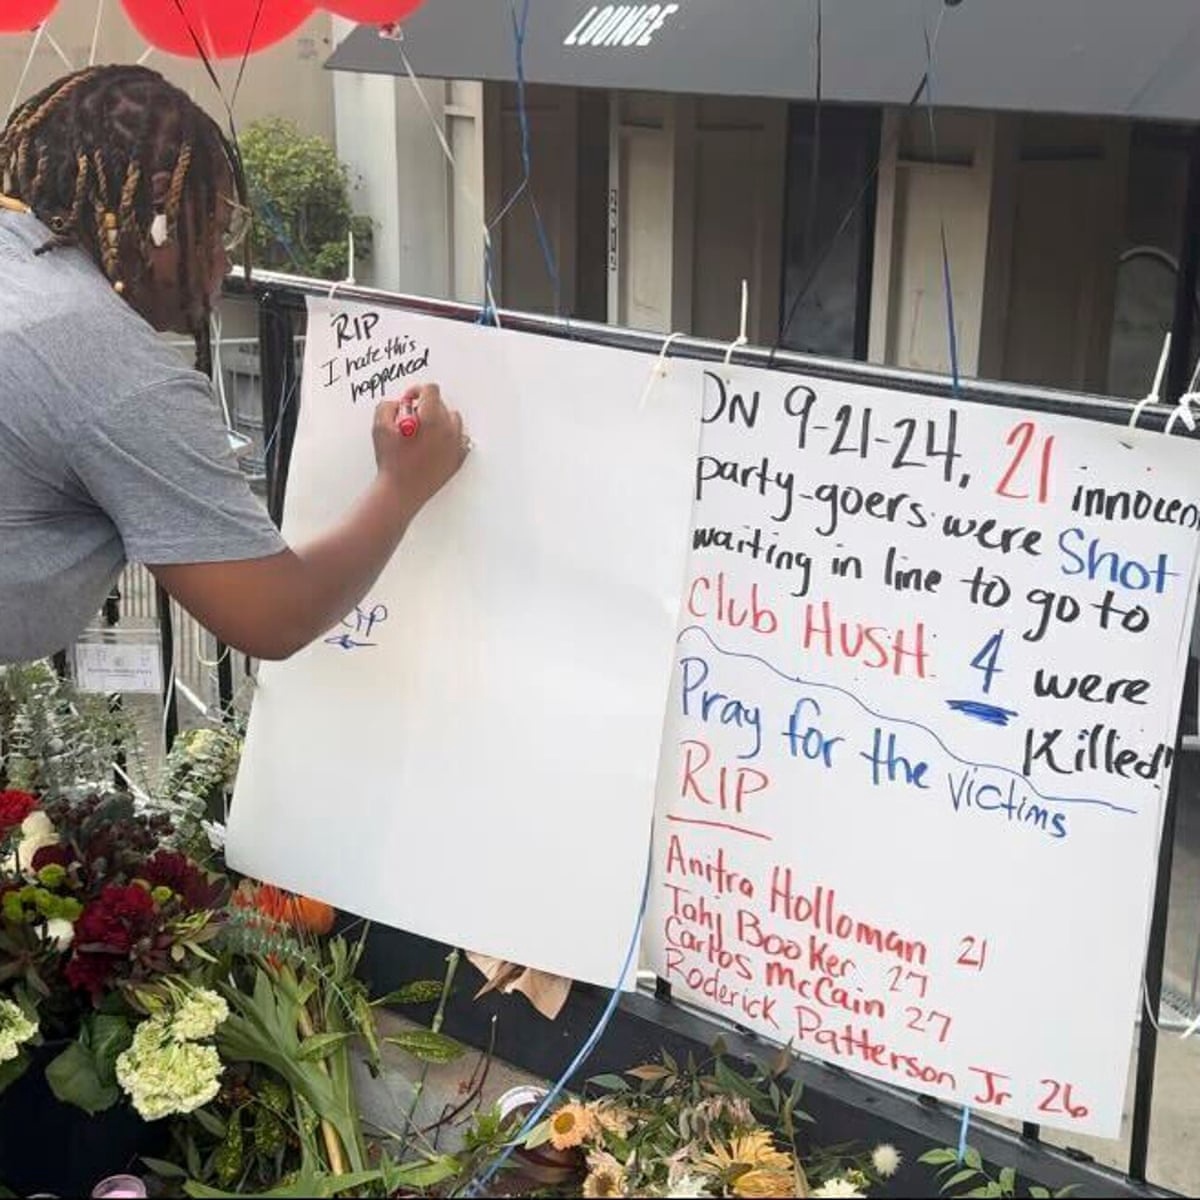 LOUNGE
RIP
I hate this
happened
RIP
ON 9-21-24, 21 innocen
party-goers were Shot
waiting in line to go to
Club HUSH. 4 were
Killed!
Pray for the victims
RIP
Anitra Holloman 21
Tahj Booker 27
Carlos McCain 27
Roderick Patterson Jr 26